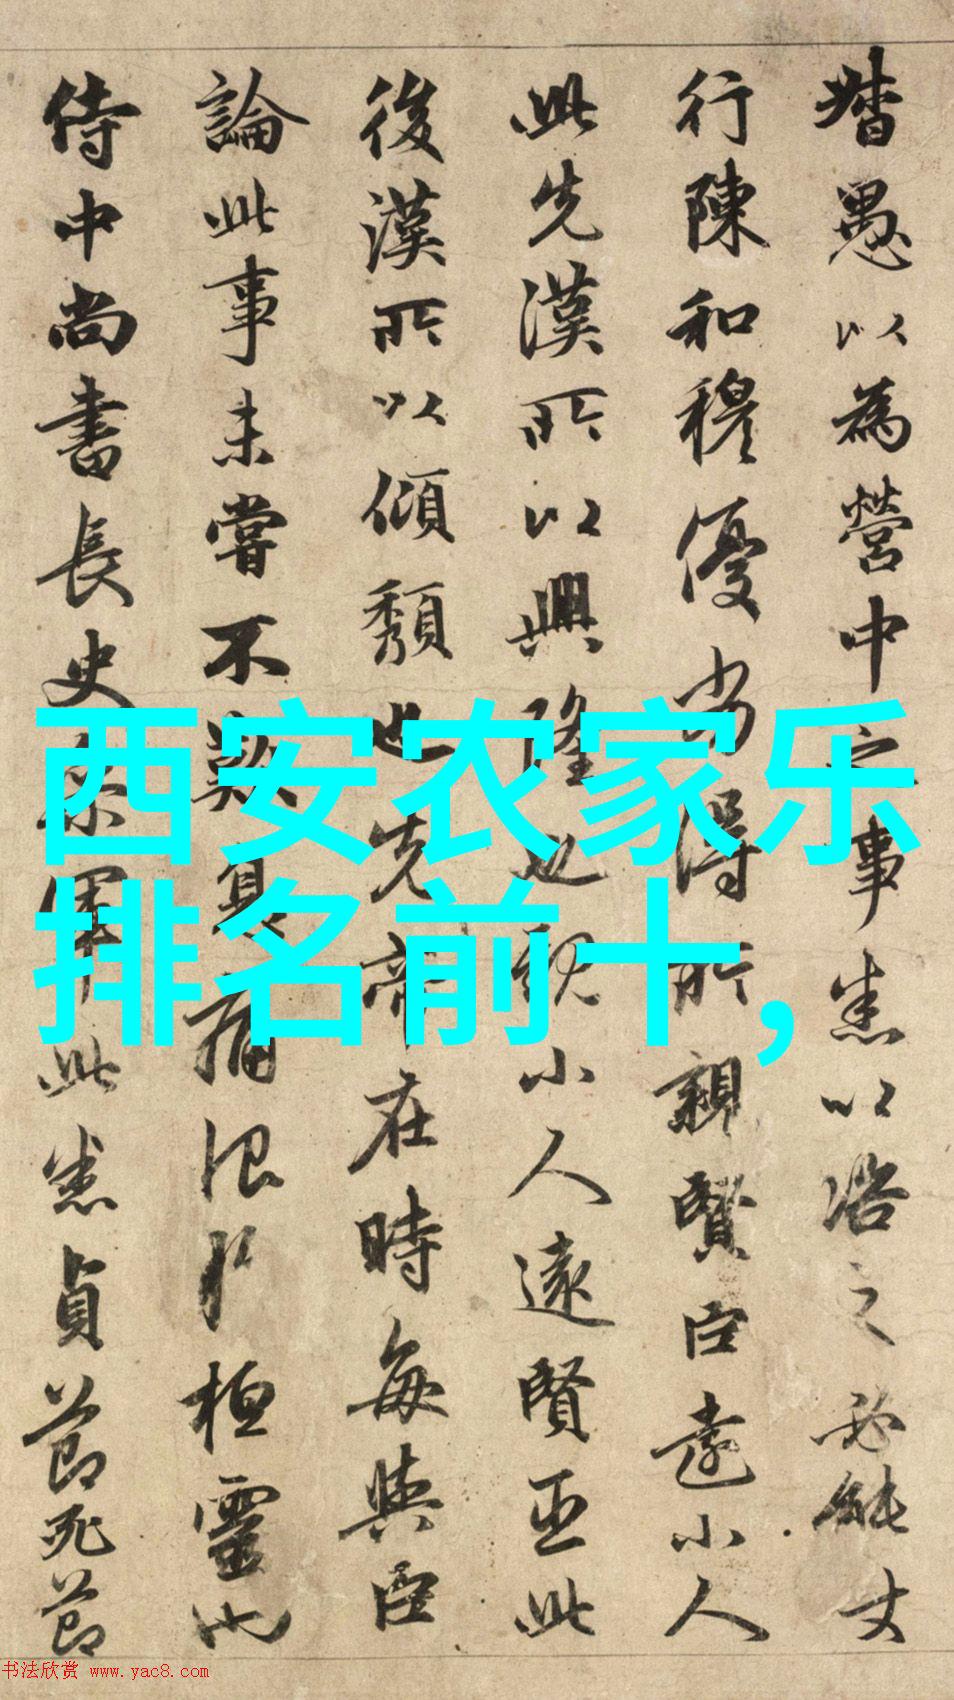 督愚以為營中之事悉以咨之必能丈
行陳和穆優劣得所親賢臣遠小人
此先漢所以興隆也親小人遠賢臣此
後漢所以傾頹也先帝在時每與臣
論此事未嘗不歎息痛恨於桓靈也
侍中尚書長史參軍此悉貞節死節
西安农家乐
排名前十,
书法欣赏 www.yac8.com